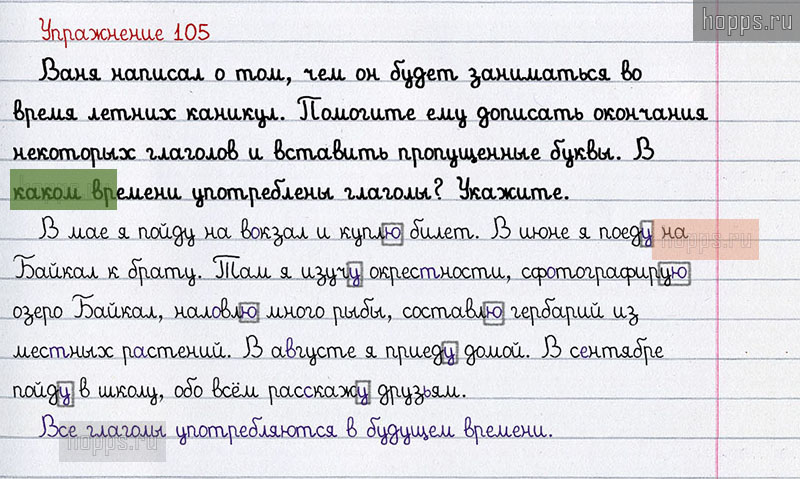 hopps.ru
Упражнение 105
Ваня написал о том, чем он будет заниматься во
время летних каникул. Помогите ему дописать окончания
некоторых глаголов и вставить пропущенные буквы. В
каком времени употреблены глаголы? Укажите.
В мае я пойду на вокзал и куплю билет. В июне я поеду на
hopps.ru
Байкал к брату. Там я изучу окрестности, сфотографирую
озеро Байкал, наловлю много рыбы, составлю гербарий из
местных растений. В августе я приеду домой. В сентябре
пойду в школу, обо всём расскажу друзьям.
Все глаголы употребляются в будущем времени.
hopps.ru